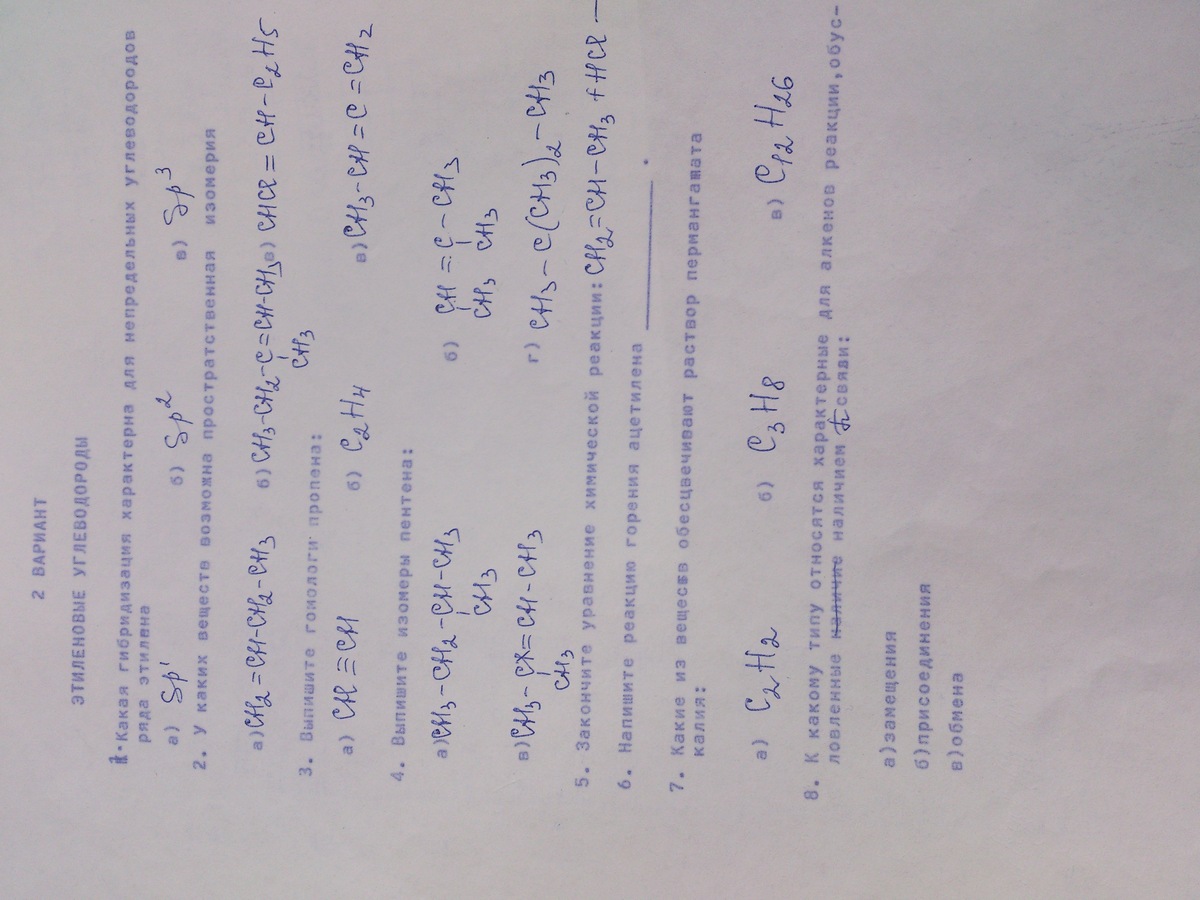 2 ВАРИАНТ
ЭТИЛЕНОВЫЕ УГЛЕВОДОРОДЫ
1.Какая гибридизация характерна для непредельных углеводородов
ряда этилена
а) Sp' б) Sp² в) Sp³
2. У каких веществ возможна простратственная изомерия
а) CH₂=CH-CH₂-CH₃ б) CH₃-CH₂-C=CH-CH₃ в) CHCl=CH-C₂H₅
CH₃
3. Выпишите гомологи пропена:
а) CH≡CH б) C₂H₄ в) CH₃-CH=C=CH₂
4. Выпишите изомеры пентена:
а) CH₃-CH₂-CH-CH₃ б) CH=C-CH₃
CH₃ CH₃ CH₃
в) CH₃-CH=CH-CH₃ г) CH₃-C(CH₃)₂-CH₃
CH₃
5. Закончите уравнение химической реакции: CH₂=CH-CH₃+HCl —
6. Напишите реакцию горения ацетилена ________.
7. Какие из веществ обесцвечивают раствор перманганата
калия:
а) C₂H₂ б) C₃H₈ в) C₁₂H₂₆
8. К какому типу относятся характерные для алкенов реакции,обус-
ловленные наличие наличием π связи:
а)замещения
б)присоединения
в)обмена